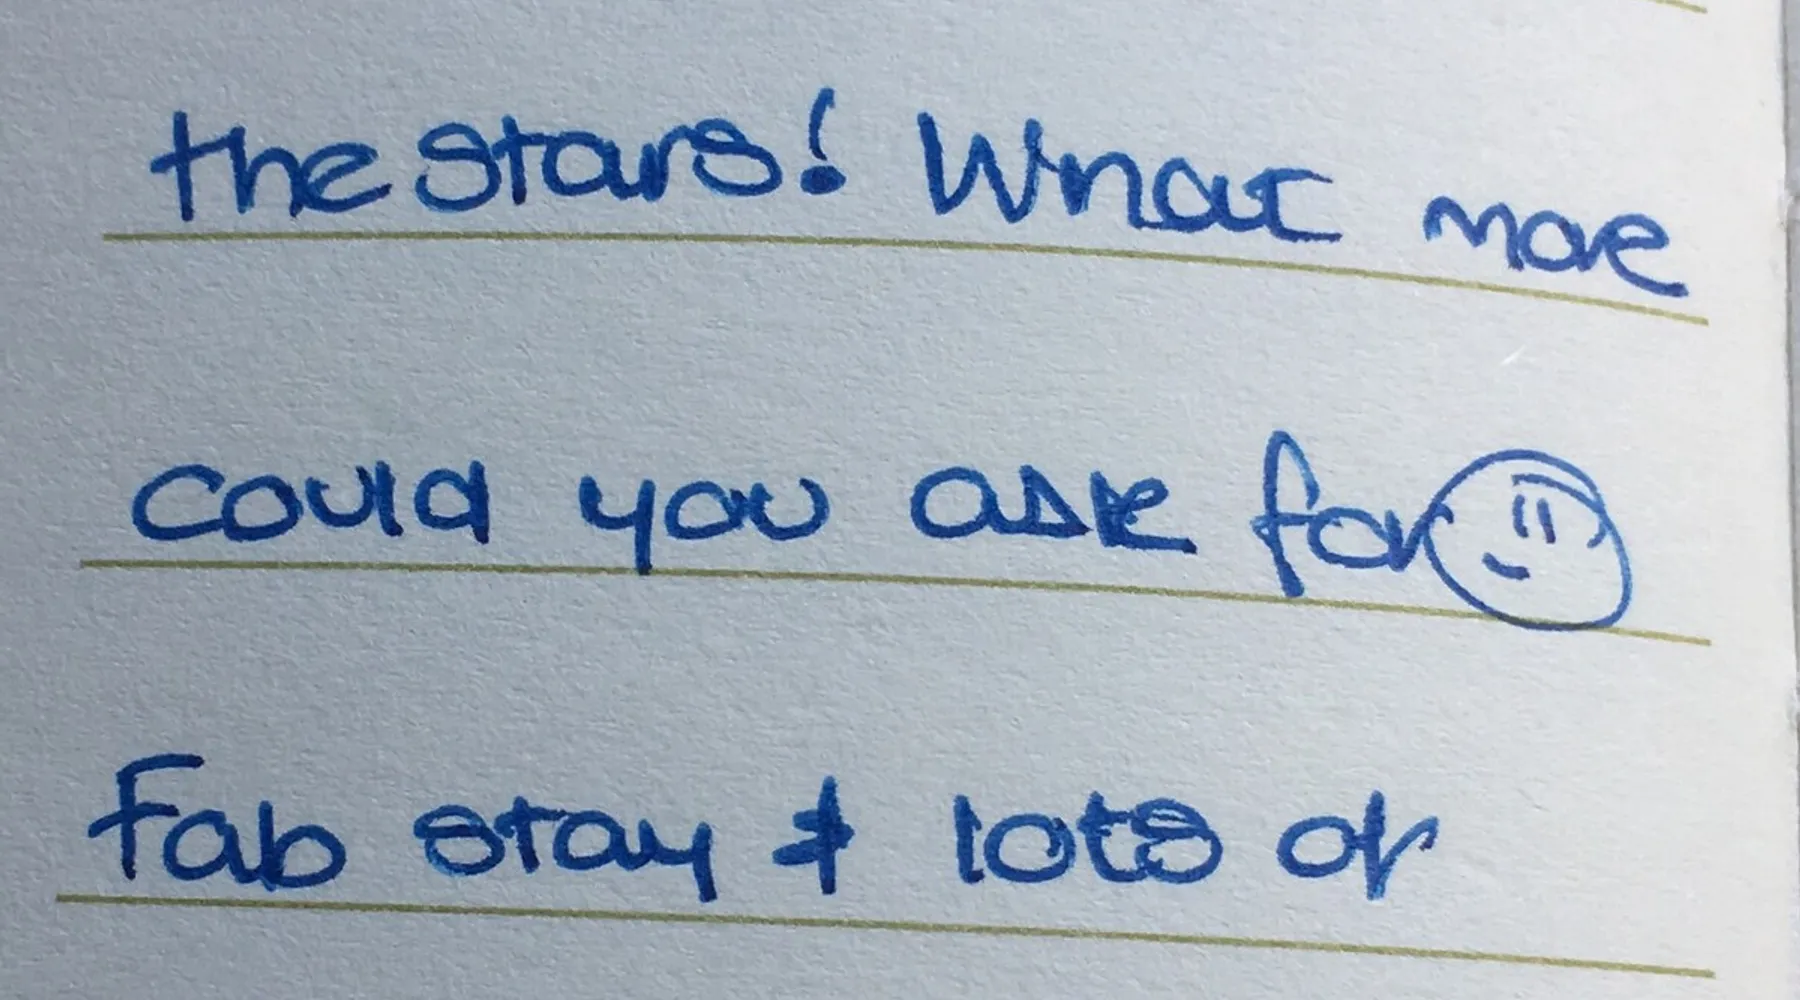 the stars! What more
could you ask for
Fab stay & lots of